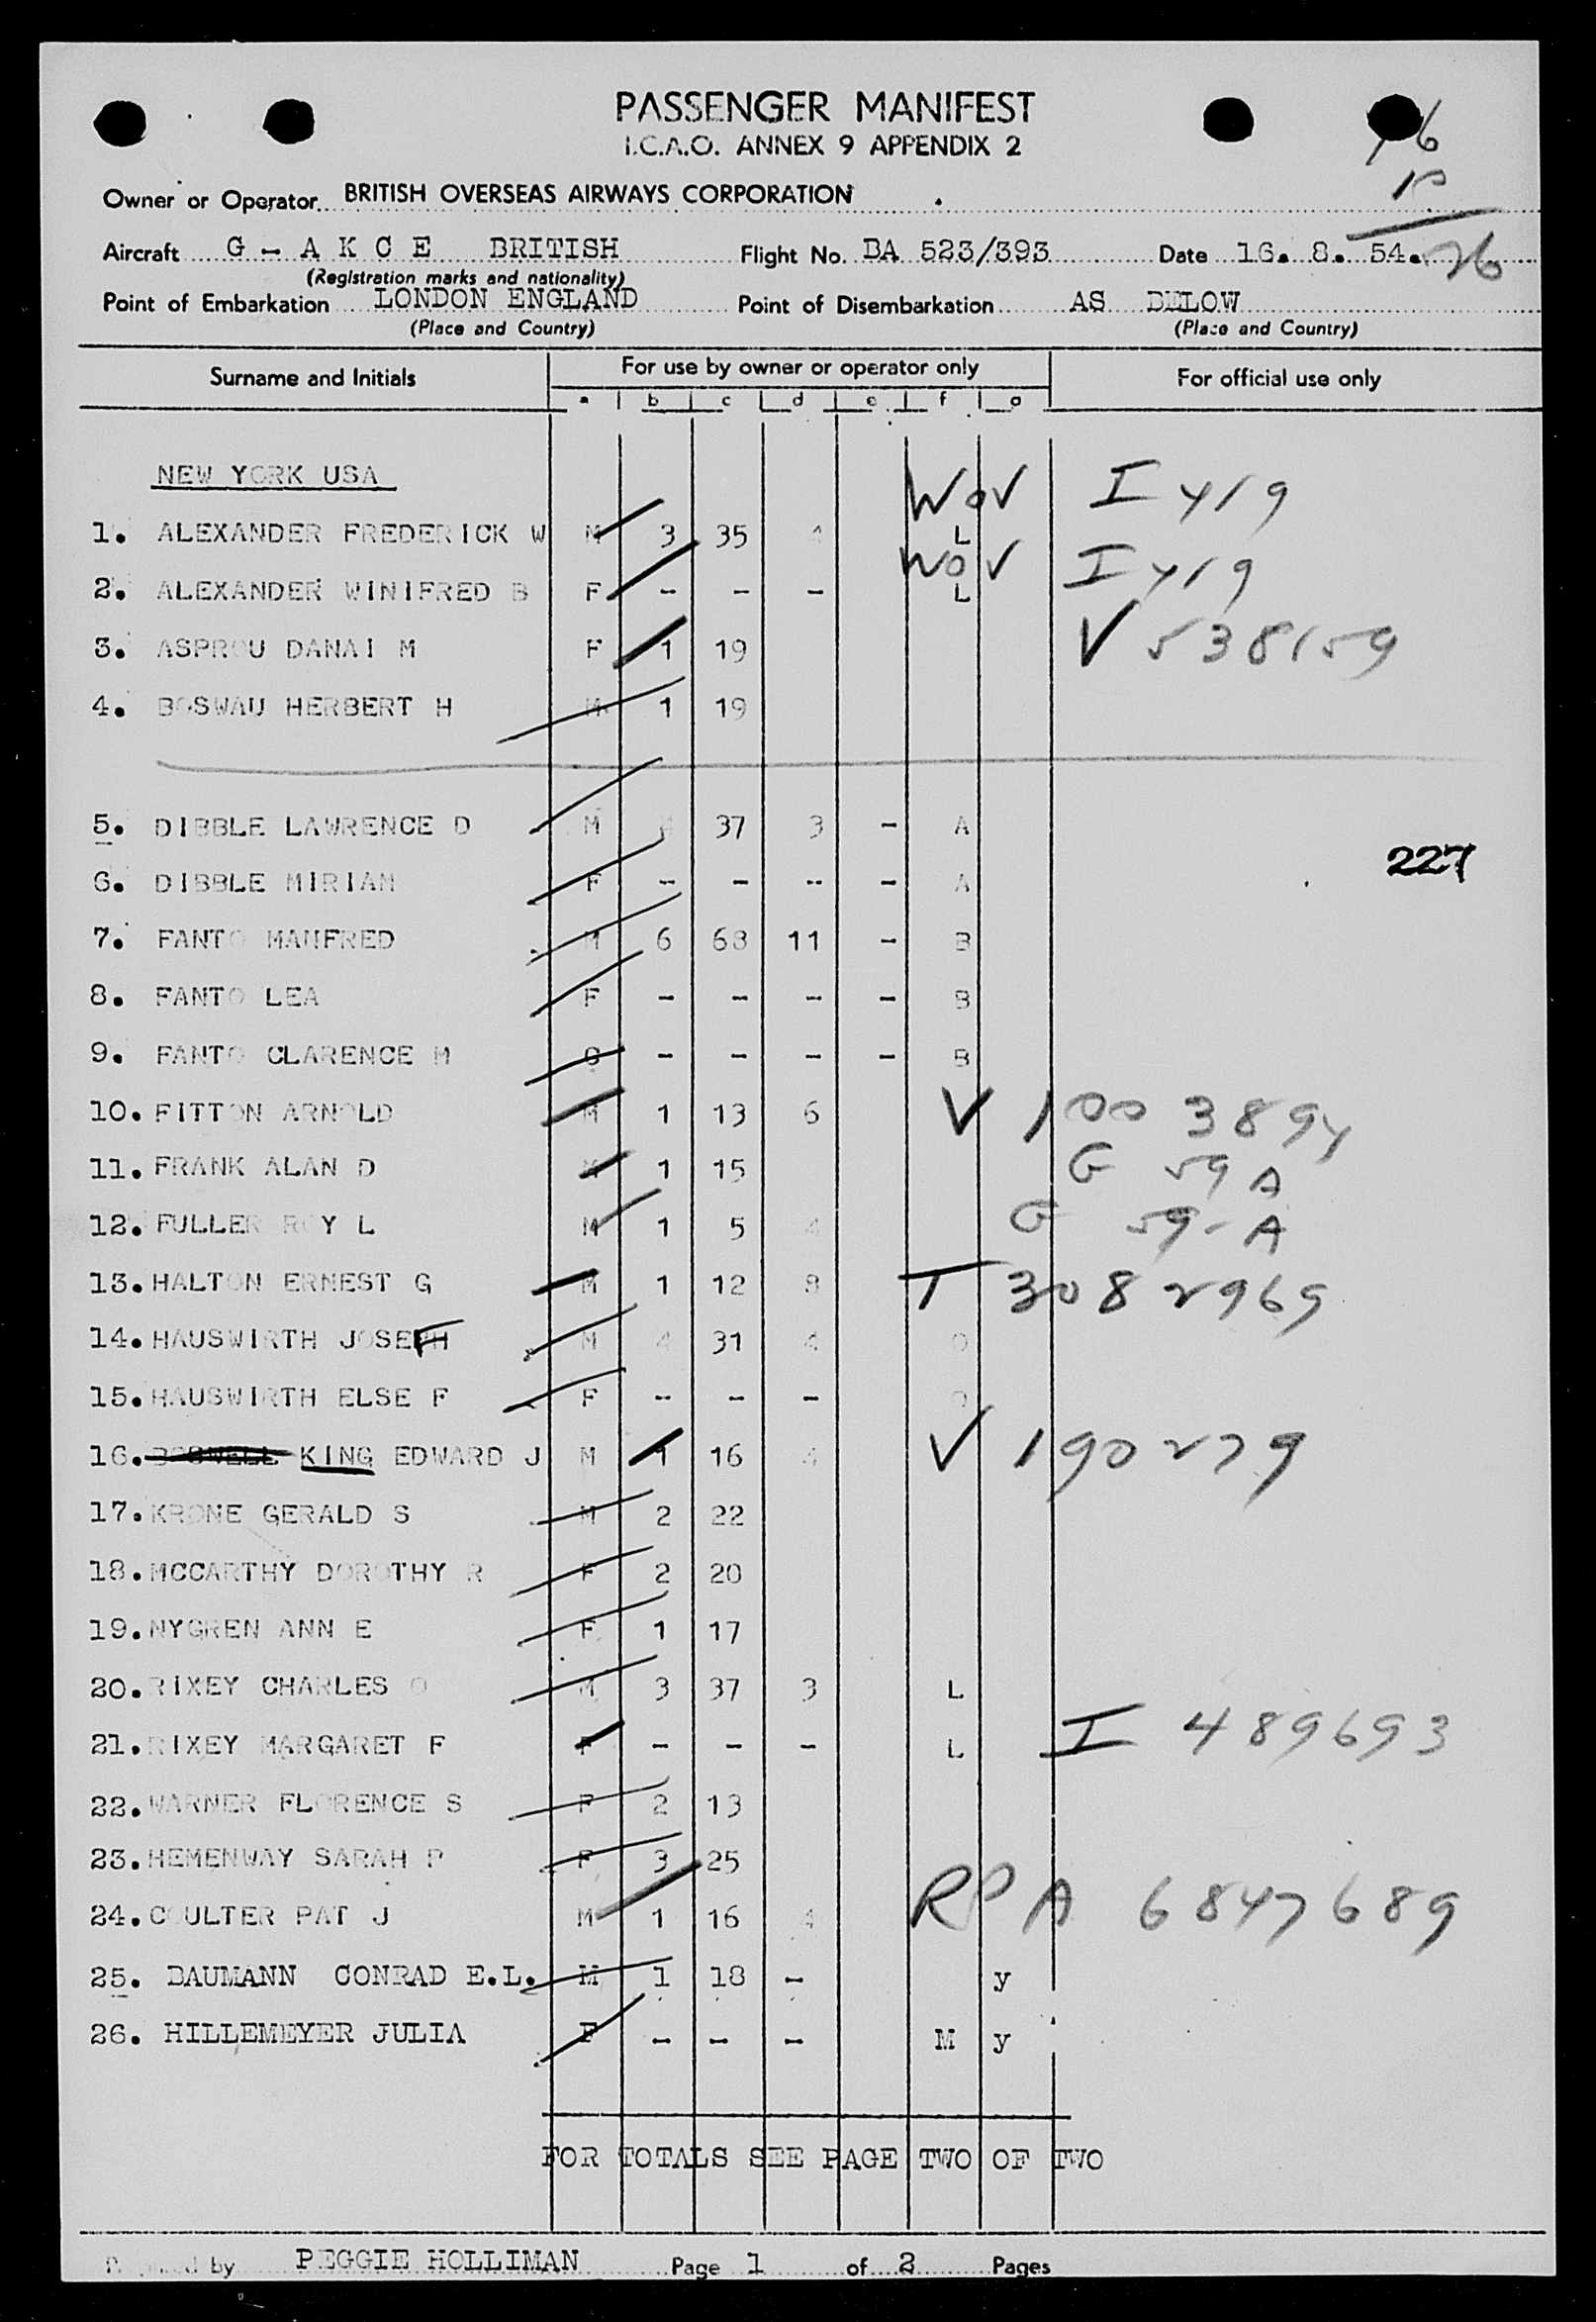 PASSENGER MANIFEST
I.C.A.O. ANNEX 9 APPENDIX 2
16
10
26
Owner or Operator BRITISH OVERSEAS AIRWAYS CORPORATION
Aircraft G - A K C E BRITISH Flight No. BA 523/393 Date 16. 8. 54.
(Registration marks and nationality)
Point of Embarkation LONDON ENGLAND Point of Disembarkation AS BELOW
(Place and Country) (Place and Country)
Surname and Initials For use by owner or operator only For official use only
a b c d e f g
NEW YORK USA
1. ALEXANDER FREDERICK W M 3 35 4 L WOV I 419
2. ALEXANDER WINIFRED B F - - - L WOV I 419
3. ASPROU DANAI M F 1 19 V 538159
4. BOSWAU HERBERT H M 1 19
5. DIBBLE LAWRENCE D M 37 3 - A
227
6. DIBBLE MIRIAM F - - - - A
7. FANTO MANFRED M 6 68 11 - B
8. FANTO LEA F - - - - B
9. FANTO CLARENCE M C - - - - B
10. FITTON ARNOLD M 1 13 6 V 1003894
11. FRANK ALAN D M 1 15 G 59 A
12. FULLER ROY L M 1 5 4 G 59-A
13. HALTON ERNEST G M 1 12 8 T 3082969
14. HAUSWIRTH JOSEF M 4 31 4 O
15. HAUSWIRTH ELSE F F - - - O
16. BOSWELL KING EDWARD J M 1 16 4 V 190279
17. KRONE GERALD S M 2 22
18. MCCARTHY DOROTHY R F 2 20
19. NYGREN ANN E F 1 17
20. RIXEY CHARLES O M 3 37 3 L
21. RIXEY MARGARET F F - - - L I 489693
22. WARNER FLORENCE S F 2 13
23. HEMENWAY SARAH P F 3 25
24. COULTER PAT J M 1 16 4 RP A 6847689
25. BAUMANN CONRAD E.L. M 1 18 - y
26. HILLEMEYER JULIA F - - - M y
FOR TOTALS SEE PAGE TWO OF TWO
by PEGGIE HOLLIMAN Page 1 of 2 Pages